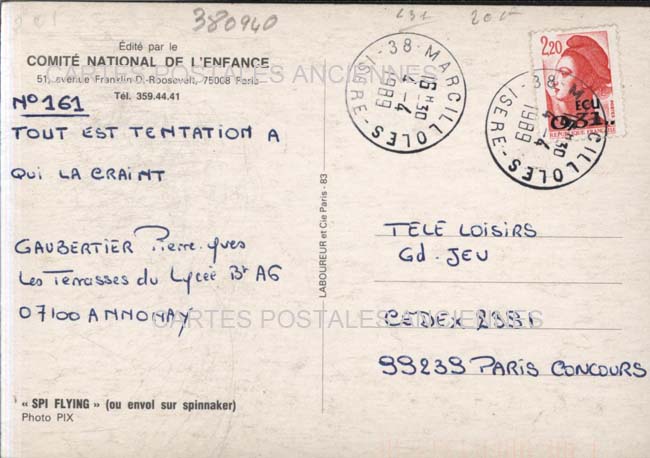 380940
Édité par le
COMITÉ NATIONAL DE L'ENFANCE
51, avenue Franklin-D.-Roosevelt, 75008 Paris
Tél. 359.44.41
CARTES POSTALES ANCIENNES
N° 161
TOUT EST TENTATION A
QUI LA CRAINT
GAUBERTIER Pierre-Yves
Les Terrasses du Lycée Bt A6
07100 ANNONAY
« SPI FLYING » (ou envol sur spinnaker)
Photo PIX
LABOUREUR et Cie Paris - 83
38 - MARCILLOLES - ISERE
16 H 30
4 - 4
1989
2,20
ÉCU
0,31
REPUBLIQUE FRANÇAISE
38 - MARCILLOLES - ISERE
16 H 30
4 - 4
1989
TELE LOISIRS
Gd. JEU
CARTES POSTALES ANCIENNES
CEDEX 2331
99239 PARIS CONCOURS